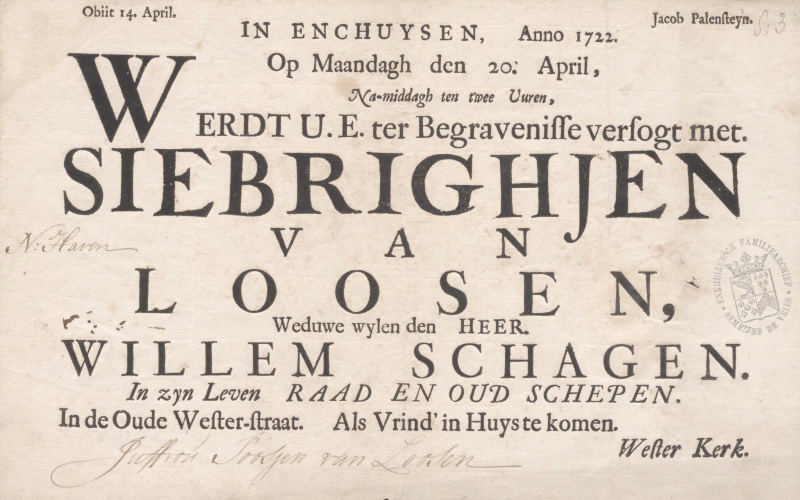 Obiit 14. April.
Jacob Palenſteyn.
IN ENCHUYSEN, Anno 1722.
Op Maandagh den 20. April,
Na-middagh ten twee Uuren,
WERDT U. E. ter Begraveniſſe verſogt met.
SIEBRIGHJEN
VAN
N: Haven
LOOSEN,
Weduwe wylen den HEER.
WILLEM SCHAGEN.
In zyn Leven RAAD EN OUD SCHEPEN.
In de Oude Weſter-ſtraat. Als Vrind' in Huys te komen.
Weſter Kerk.
Juffrou Toosjen van Loosen
ENKHUIZENSCH FAMILIEARCHIEF
SEMEIJNS DE VRIES